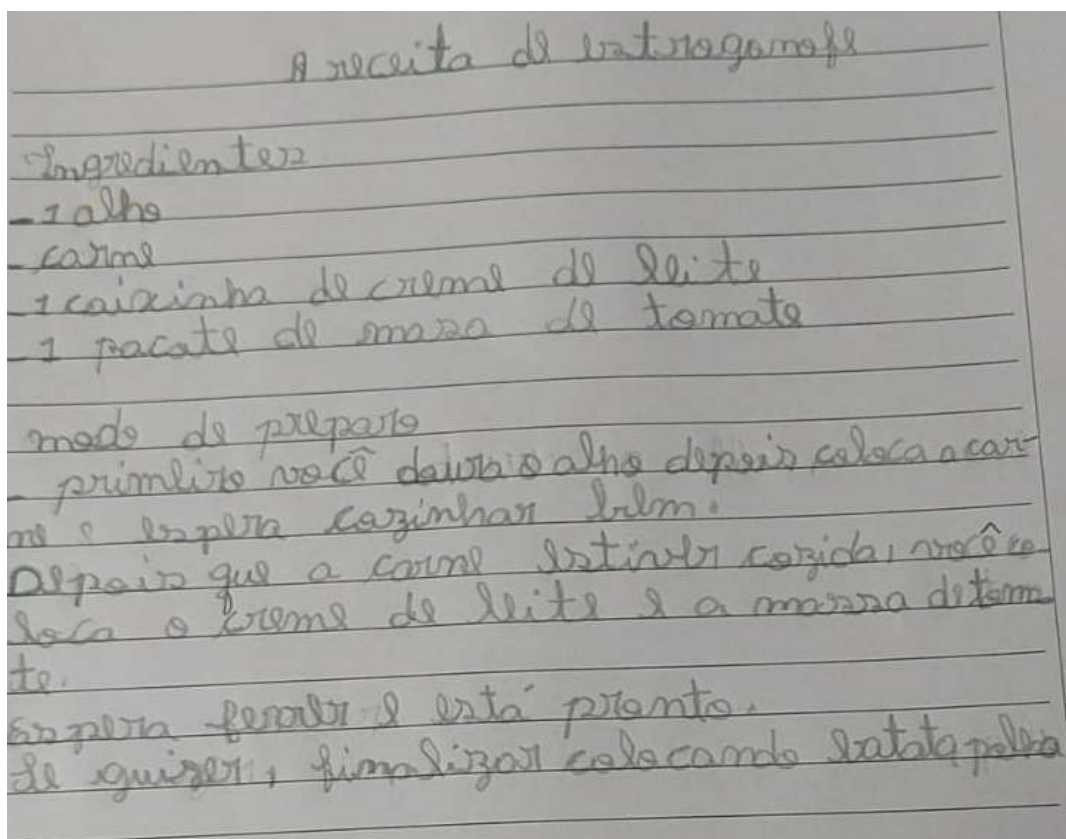 A receita de estrogamofe
Ingredientes
- 1 alho
- carne
- 1 caixinha de creme de leite
- 1 pacate de massa de tomate
modo de preparo
- primeiro você doura o alho depois coloca a car-
ne e espera cozinhar bem.
Depois que a carne estiver cozida, você co-
loca o creme de leite e a massa de toma
te.
Espera ferver e está pronto.
Se quizer, finalizar colocando batata palha